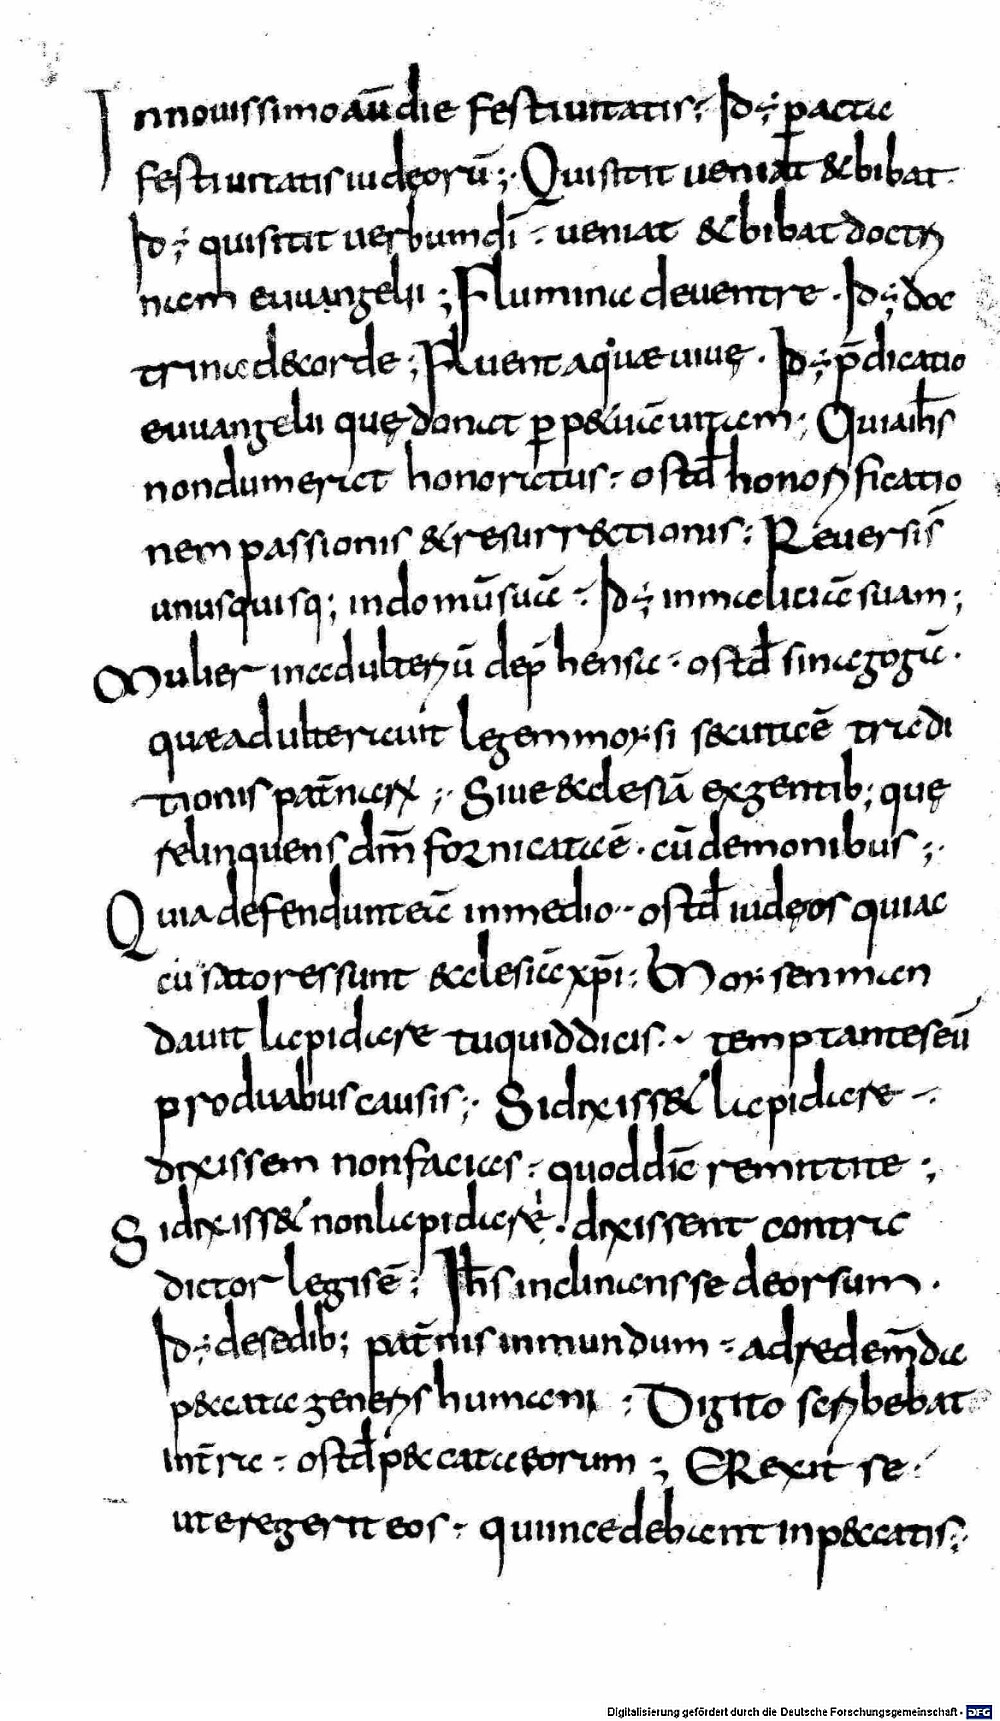 In nouissimo aū die festiuitatis · Id ÷ ꝑacta
festiuitatis iudeorū ;· Qui sitit ueniat & bibat ·
Id ÷ qui sitit uerbum dī · ueniat & bibat doctri
nam euuangelii ; Flumina de uentre · Id ÷ doc
trina de corde ; Fluent aquæ uiuę · Id ÷ p̄dicatio
euuangelii quę donat ꝑp&uā uitam ; Quia ih̄s
nondum erat honoratus · ostd̄ honorificatio
nem passionis & resurr&tionis ; Reuersi s̄
unusquisq; in domū suā · Id ÷ in malitiā suam ;
Mulier in adulteriū dep̄hensa · ostd̄ sinagogā ·
quæ adulterauit legem mosi secuta ē tradi
tionis pat̄narꝝ ;· Siue &clesiā ex gentib; quę
relinquens dm̄ fornicata ē · cū demonibus ;·
Quia defendunt eā in medio · ostd̄ iudęos quia ac
cusatores sunt &clesiā xp̄i ; Morsen man
dauit lapidare tu quid dicis · temptantes eū
pro duabus causis ;· Si dixiss& lapidare ·
dixissem non facias · quod dā remittite ;
Si dixiss& non lapidare · dixissent contra
dictor legis ē ; Ih̄s inclinans se deorsum ·
Id ÷ de sedib; pat̄nis in mundum · ad redem̄da
p&cata generis humani ; Digito scribebat
in t̄ra · ostd̄ p&cata eorum ; Erexit se ·
ut eregerit eos · qui iacebant in p&catis ;·
Digitalisierung gefördert durch die Deutsche Forschungsgemeinschaft - DFG